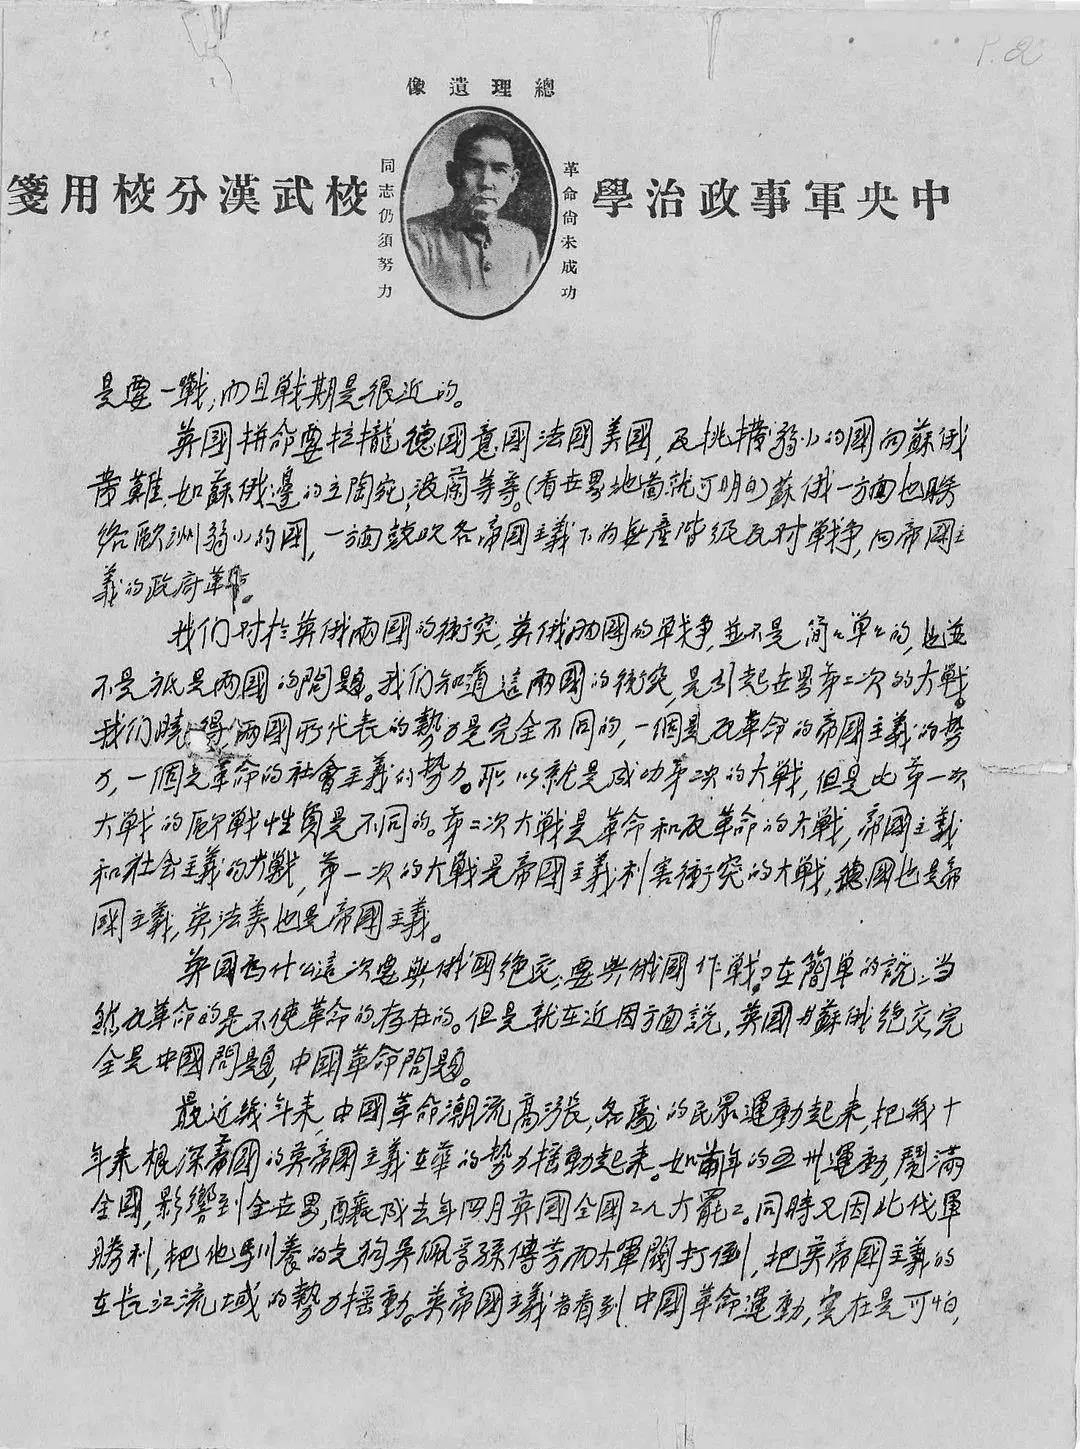 P. 2
總理遺像
中央軍事政治學校武漢分校用箋
革命尚未成功
同志仍須努力
是要一戰,而且戰期是很近的。
英國拼命要拉攏德國意國法國美國,及挑撥弱小的國向蘇俄
發難,如蘇俄邊的立陶宛,波蘭等等。(看世界地圖就可明白)蘇俄一方面也聯
絡歐洲弱小的國,一方面鼓吹各帝國主義下的無產階級反对戰争,向帝國主
義的政府革命。
我们对於英俄兩國的衝突,英俄兩國的戰争,並不是简々單々的,也並
不是祇是兩國的問題。我们知道這兩國的衝突,是引起世界第二次的大戰。
我们曉得兩國所代表的勢力是完全不同的,一個是反革命的帝國主義的勢
力,一個是革命的社會主義的勢力。所以就是成功第二次的大戰,但是比第一次
大戰的歐戰性質是不同的。第二次大戰是革命和反革命的大戰,帝國主義
和社会主義的大戰,第一次的大戰是帝國主義利害衝突的大戰,德國也是帝
國主義,英法美也是帝國主義。
英国為什么這次要與俄國絶交,要與俄國作戰?在簡单的說,当
然反革命的是不使革命的存在的。但是就在近因方面說,英國与蘇俄絶交完
全是中國問題,中國革命問題。
最近幾年来,中國革命潮流高漲,各處的民眾運動起来,把幾十
年来根深蒂固的英帝國主義在華的勢力摇動起来。如前年的五卅運動,鬧滿
全國,影響到全世界,釀成去年四月英國全國工人大罷工。同時又因北伐軍
勝利,把他馴養的走狗吳佩孚孫傳芳兩大軍閥打倒,把英帝國主義的
在長江流域的勢力摇動。英帝國主義者看到中國革命運動,实在是可怕,